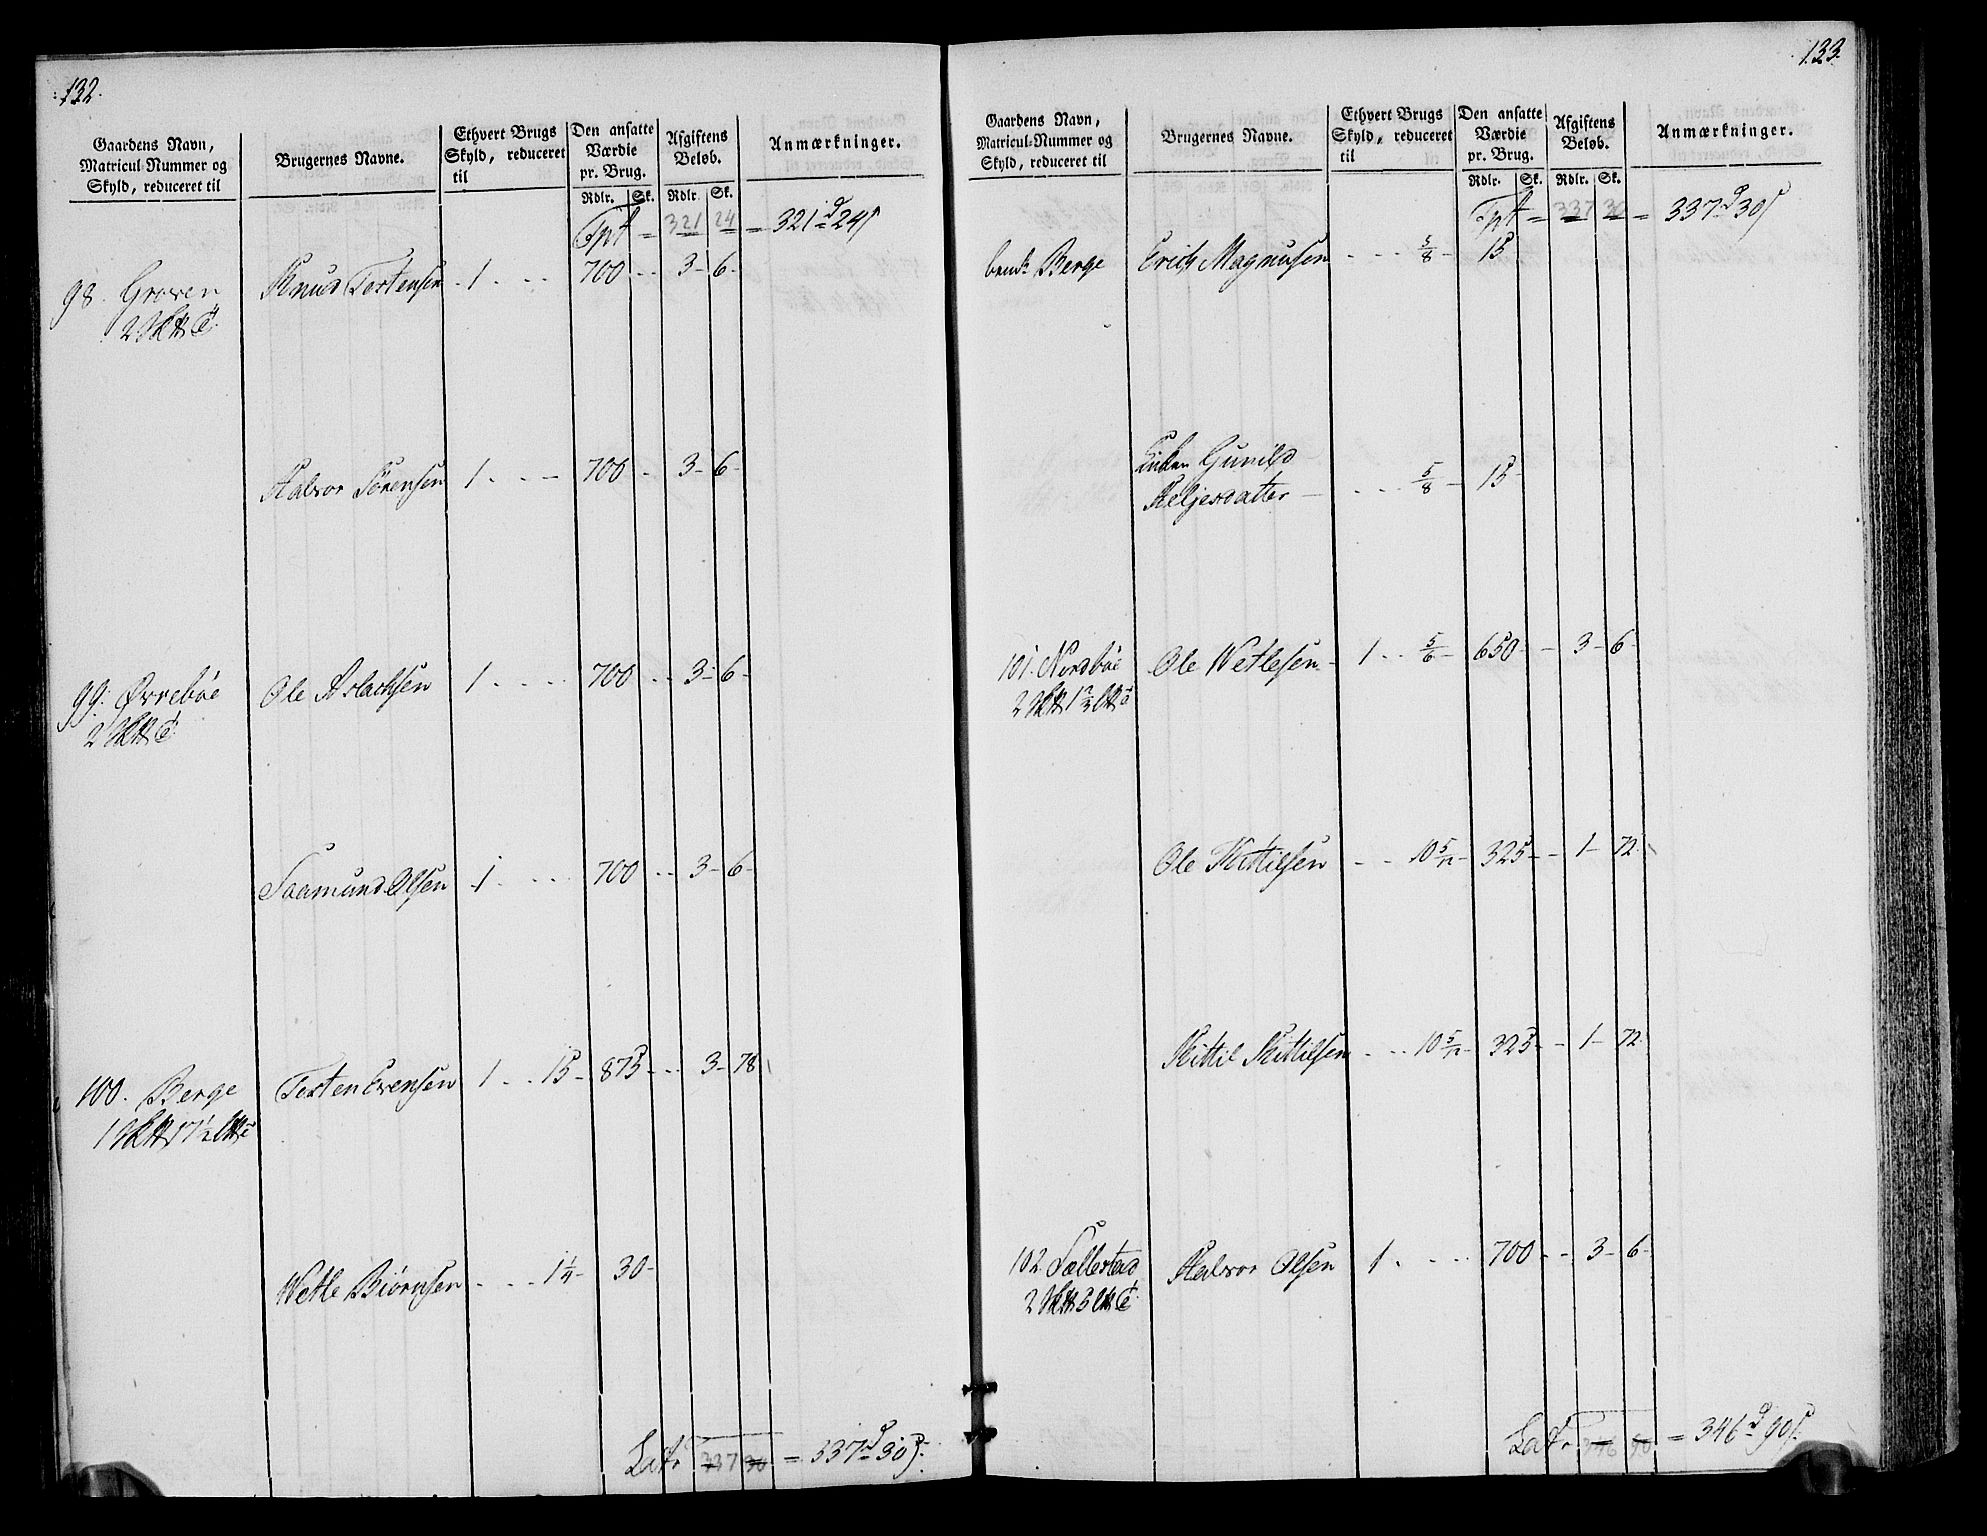 132.
Gaardens Navn, Matricul-Nummer og Skyld, reduceret til
Brugernes Navne.
Ethvert Brugs Skyld, reduceret til
Den ansatte Værdie pr. Brug.
Rdlr. Sk.
Afgiftens Beløb.
Rdlr. Sk.
Anmærkninger.
Tpt = 321 24 = 321 d 24 s
98. Groven Knud Tostensen 1 . . . 700 - - 3 - 6 -
2
Halvor Sørensen 1 . . - 700 - 3 - 6 -
99. Øvrebøe Ole Aslachsen 1 . . . . 700 - - 3 - 6 -
2
Saamund Olsen 1 . . . . 700 - - 3 - 6 -
100. Berge Tosten Evensen 1 . . 15 - 875 - - 3 - 78
1 17 1/2
Wetle Biørnsen - . . . 1 1/4 - 30 -
Lat. 337 30 = 337 d 30 s.
133.
Gaardens Navn, Matricul-Nummer og Skyld, reduceret til
Brugernes Navne.
Ethvert Brugs Skyld, reduceret til
Den ansatte Værdie pr. Brug.
Rdlr. Sk.
Afgiftens Beløb.
Rdlr. Sk.
Anmærkninger.
Tpt = 337 30 = 337 d 30 s
Berge Erich Magnusen - . . . 5/8 - 15
Enken Gunild
Heljesdatter - . . . 5/8 - 15
101. Nordbøe Ole Wetlesen - 1 . . 5/6 - 650 - - 3 - 6 -
2 1 2/3
Ole Kittilsen - - - 10 5/12 - 325 - - 1 - 72
Kittil Kittilsen - . . . 10 5/12 - 325 - - 1 - 72
102. Sællestad Halvor Olsen 1 . . . . 700 - - 3 - 6 -
2 3
Lat. 346 90 = 346 d 90 s.